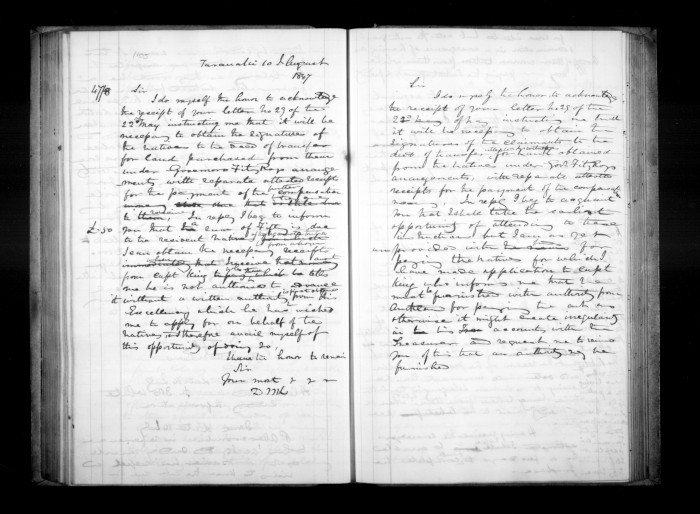 Taranaki 10 August
1847
47/8
Sir
I do myself the honor to acknowledge
the receipt of your letter No 29 of the
22nd May instructing me that it will be
necessary to obtain the signatures of
the natives to the Deed of transfer
for land purchased from them
under Governor Fitz Roys arrange
ments, with separate attested receipts
for the payment of the further compensation
to them. In reply I beg to inform
£.50
you that the sum of fifty due
to the resident natives
I can obtain the necessary receipts
immediately
from Capt King
me he is not authorised to advance
it without a written authority from His
Excellency which he has wished
me to apply for on behalf of the
natives, & I therefore avail myself of
this opportunity of doing so,
I have the honor to remain
Sir
Your most &c &c
D McL
Sir
I do myself the honor to acknowledge
the receipt of your letter No 29 of the
22nd of May instructing me that
it will be necessary to obtain the
signatures of the claimants to the
deed of transfer for land obtained
from the natives under Gov. Fitz Roys
arrangements, with separate attested
receipts for the payment of the compensation
money. In reply I beg to acquaint
you that I shall take the earliest
opportunity of attending to these
instructions, but I am as yet
provided with for
paying the natives for which I
have made application to Capt
King who informs me that he
must be furnished with authority from
Auckland for paying the
otherwise it might create irregularity
in his accounts with the
Treasurer and request me to remind
you of this that an authority may be
furnished